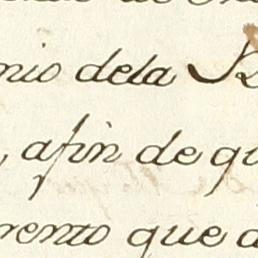 nio dela R
, afin de qu
rento que